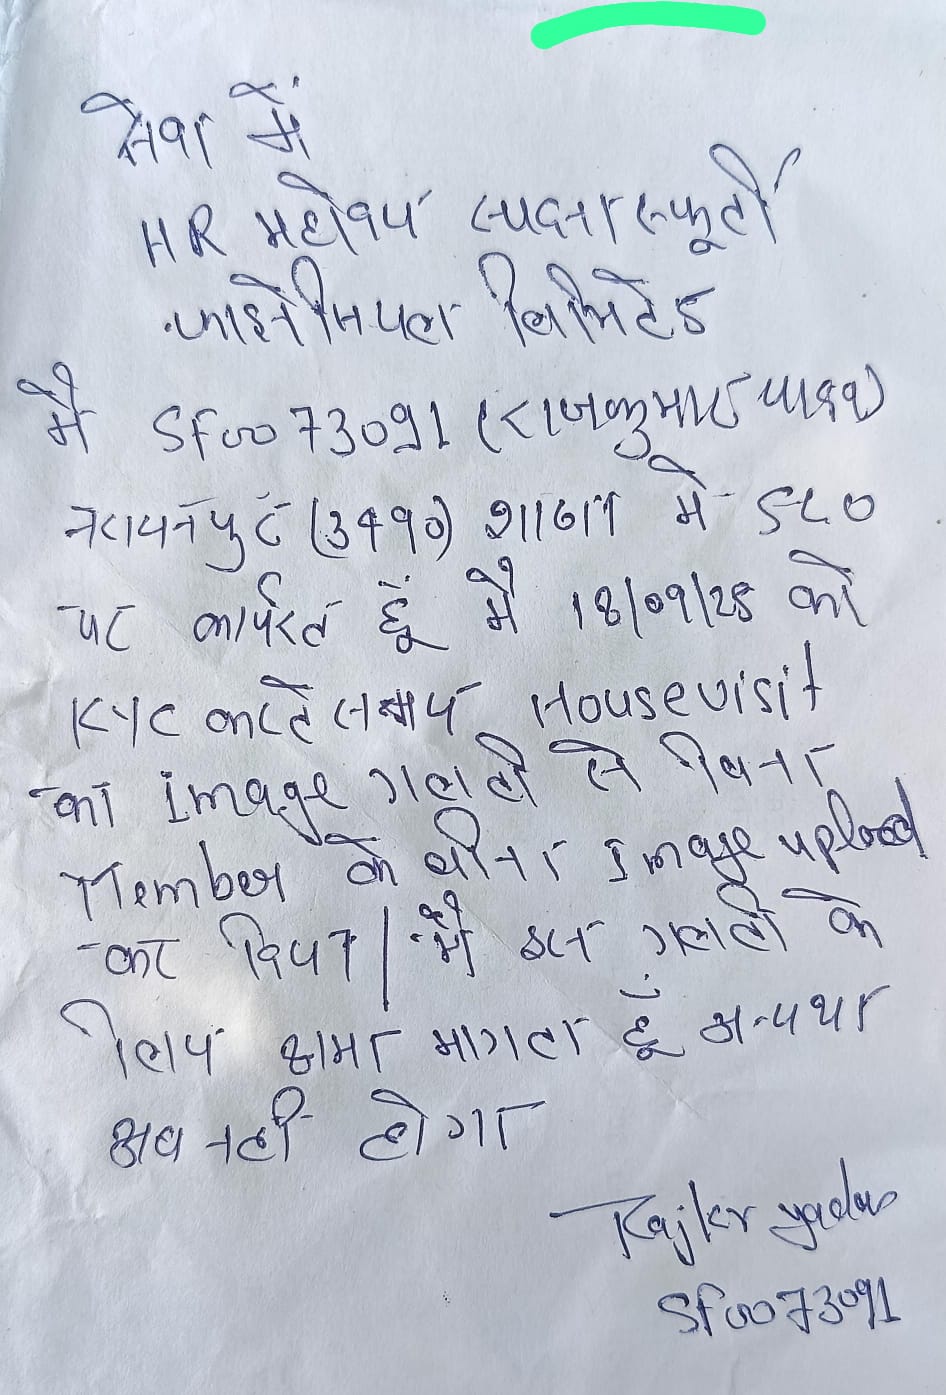 सेवा में
HR महोदय स्पन्दना स्फूर्ती
फाइनेंसियल लिमिटेड
मैं SF0073091 (राजकुमार यादव)
नरायनपुर (3490) शाखा में SLO
पर कार्यरत हूँ मैं 18/09/25 को
KYC करते समय Housevisit
का Image गलती से बिना
Member के बीना Image upload
कर दिया | मैं इस गलती के
लिय क्षमा मागता हूँ अन्यथा
अब नही होगा
Rajkr yadav
SF0073091